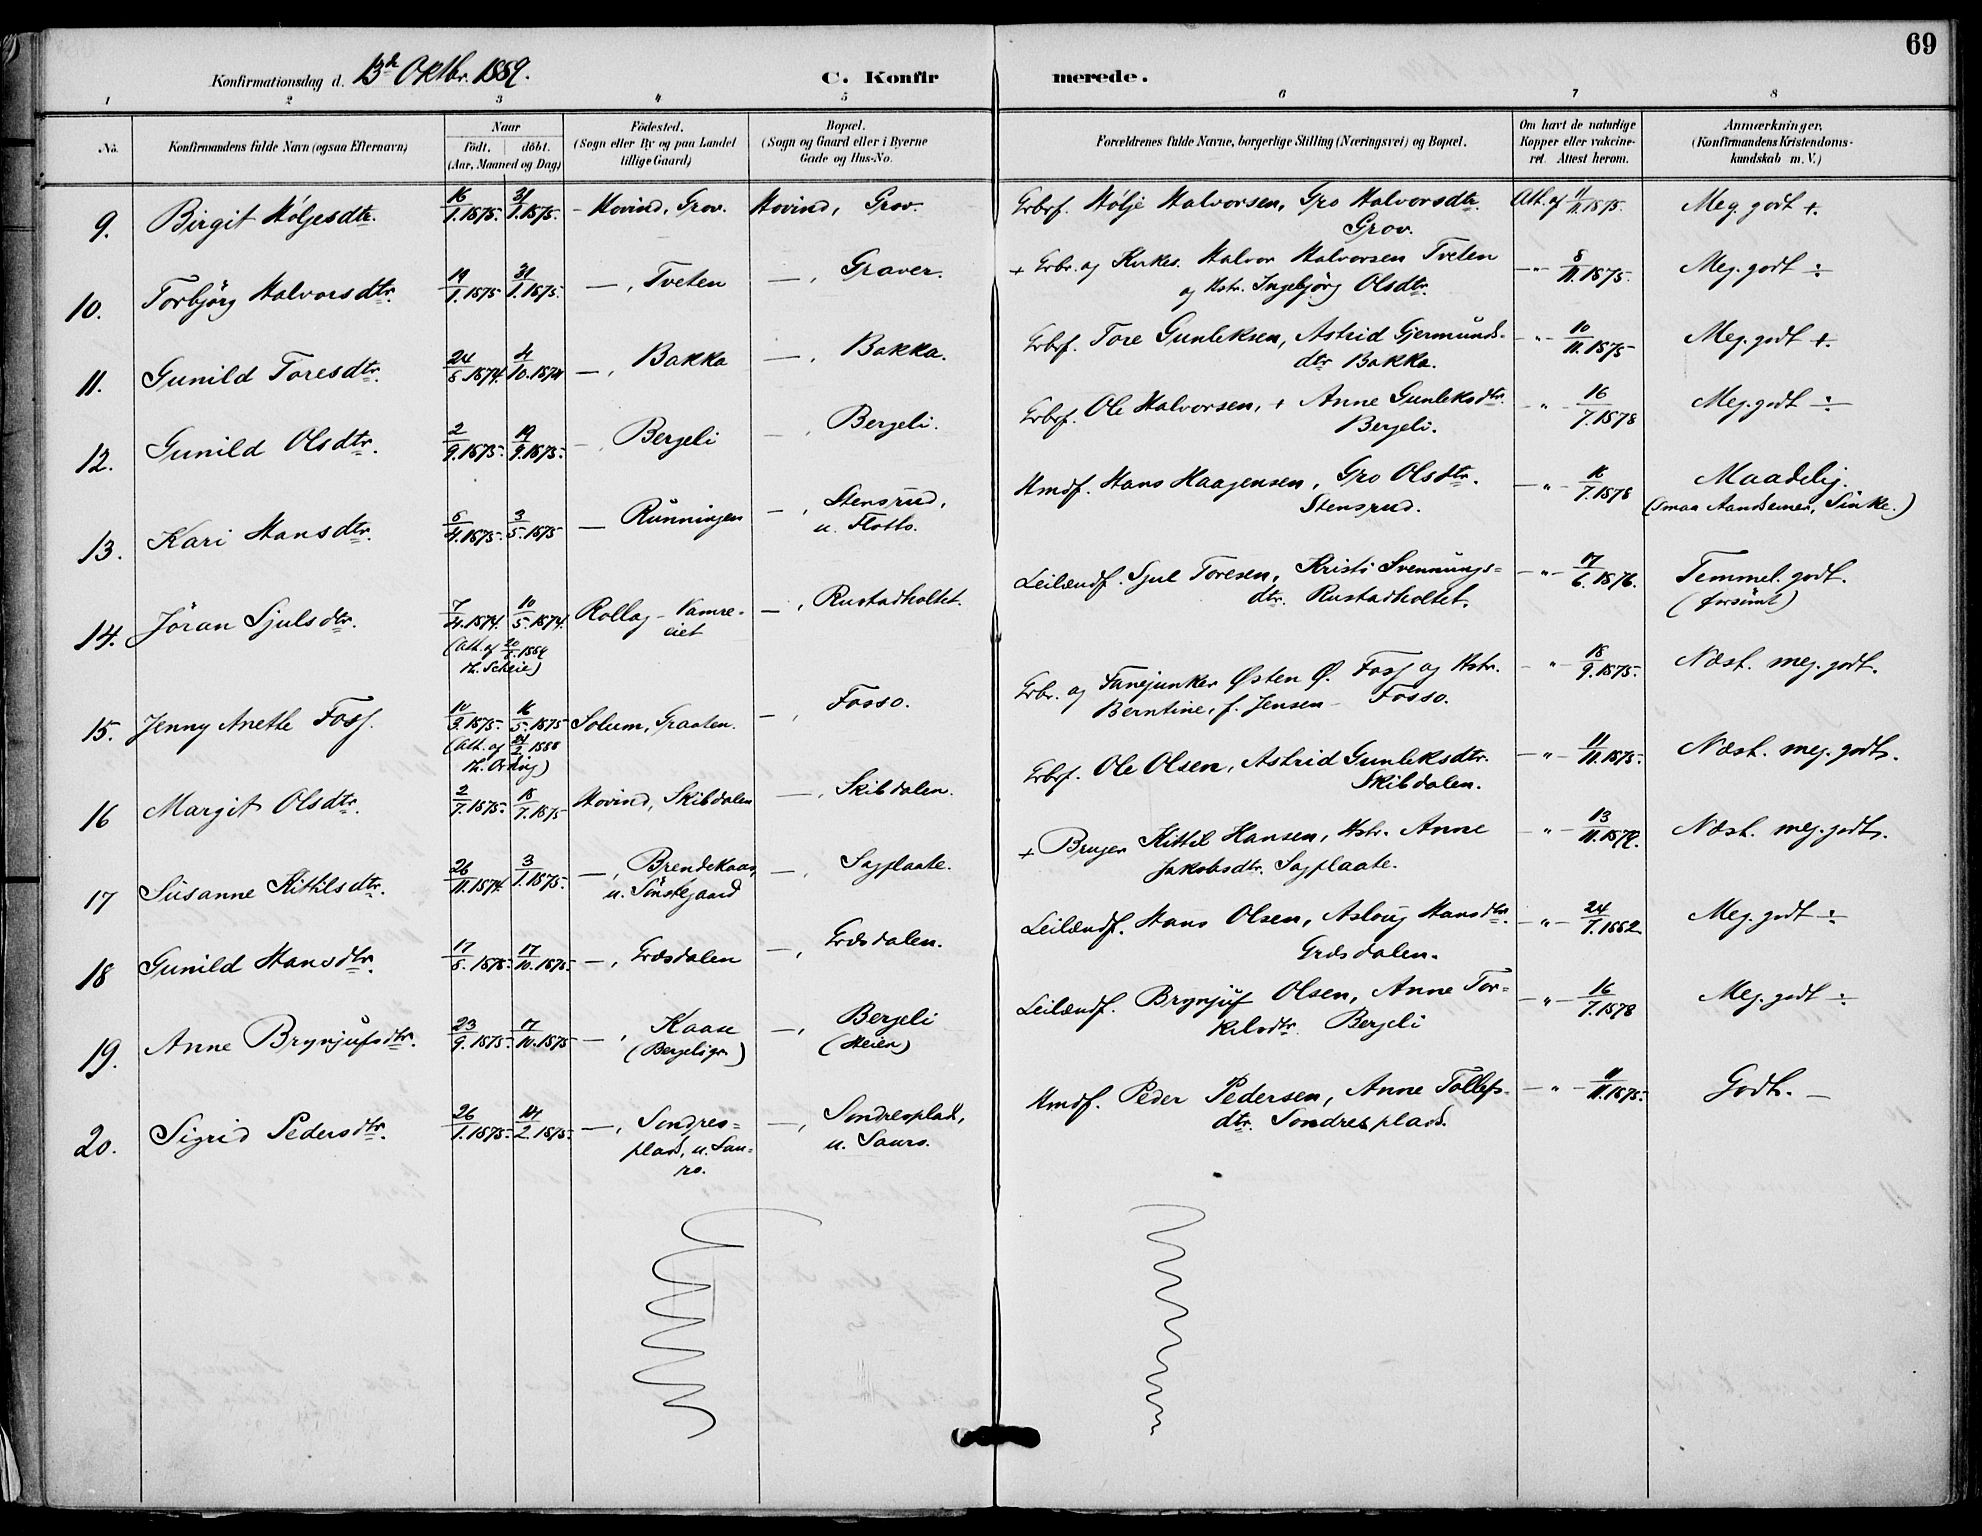 69
Konfirmationsdag d. 13de Oktbr. 1889. C. Konfirmerede.
1 2 3 4 5 6 7 8
No. Konfirmandens fulde Navn (ogsaa Efternavn) Naar født. døbt. (Aar, Maaned og Dag) Fødested. (Sogn eller By og paa Landet tillige Gaard) Bopæl. (Sogn og Gaard eller i Byerne Gade og Hus-No. Forældrenes fulde Navne, borgerlige Stilling (Næringsvei) og Bopæl. Om havt de naturlige Kopper eller vakcineret. Attest herom. Anmærkninger. (Konfirmandens Kristendomskundskab m. V.)
9. Birgit Høljesdtr. 16/1.1875. 31/1.1875. - Hovind, Grov. Hovind, Grov. Grbrf. Hølje Halvorsen, Gro Halvorsdtr. Att. af 11/11.1875. Meg. godt +.
Grov.
10. Torbjørg Halvorsdtr. 19/1.1875 31/1.1875. —, Tveten —, Graver. + Grbr. og Kirkes. Halvor Halvorsen Tveten —"— 8/11.1875. Meg. godt ÷
og Hstr. Ingebjørg Olsdtr.
11. Gunild Toresdtr. 24/8.1874. 4/10.1874 —, Bakka —, Bakka. Grbrf. Tore Gunleksen, Astrid Gjermunds- —"— 10/11.1875 Meg. godt +.
dtr Bakka.
12. Gunild Olsdtr. 2/9.1875. 19/9.1875. —, Bergeli —, Bergeli. Grbrf. Ole Halvorsen, + Anne Gunleksdtr. —"— 16/7.1878 Meg. godt ÷
Bergeli.
13. Kari Hansdtr. 6/4.1875. 3/5.1875 — Rünningen —, Stensrud, Hmdf. Hans Haagensen, Gro Olsdtr. —"— 16/7.1878 Maadelig.
u. Flotto. Stensrud. (Smaa Aandsevner, Sinke.)
14. Jøran Sjulsdtr. 7/4.1874. 10/5.1874. Rollag - Vamre- —, Rustadholtet. Leilændf. Sjul Toresen, Kristi Svennungs= —"— 17/6.1876. Temmel. godt.
eiet dtr. Rustadholtet. (forsømt)
(Att. af 20/8.1889
H. Scheie)
15. Jenny Anethe Fosj. 10/3.1875. 16/5.1875 Solum, Graaten. —, Fosso. Grbr. og Fanejunker Østen Ø. Fosj og Hstr. —"— 18/9.1875. Næst. meg. godt.
Berntine, f. Jensen - Fosso.
(Att. af 24/2.1888
16 Margit Olsdtr. 2/7.1875. 18/7.1875 Hovind, Skibdalen —, Skibdalen. Grbrf. Ole Olsen, Astrid Gunleksdtr. —"— 11/11.1875. Næst. meg. godt.
Skibdalen.
17 Susanne Kittilsdtr. 26/11.1874 3/1.1875. —, Brendekaas, —, Sagplaate. + Bruger Kittil Hansen, Hstr. Anne —"— 13/11.1879. Næst. meg. godt.
u. Sønstegaard Jakobsdtr. Sagplaate.
18 Gunild Hansdtr. 17/8.1875. 17/10.1875. —, Græsdalen —, Græsdalen. Leilændf. Hans Olsen, Aslaug Hansdtr. —"— 24/7.1882 Meg. godt ÷
Græsdalen.
19. Anne Brynjufsdtr. 23/9.1875. 17/10.1875 —, Kaase —, Bergeli Leilændf. Brynjuf Olsen, Anne Tor= —"— 16/7.1878 Meg. godt ÷
(Bergeligr.) (Heien) kilsdtr. Bergeli
20. Sigrid Pedersdtr. 26/1.1875. 14/2.1875. —, Sondres= —, Sondresplads, Hmdf. Peder Pedersen, Anne Tollefs- —"— 11/11.1875. Godt. —
plads, u. Sau= u. Sauro. dtr. Sondresplads.
ro.